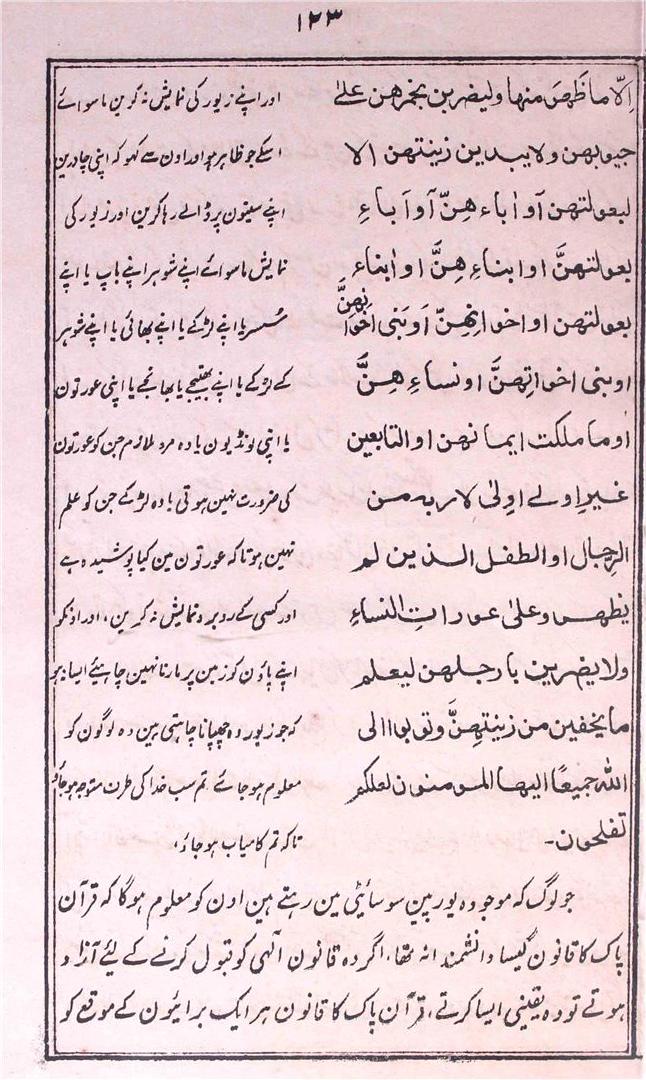 ۱۲۳
اِلّا ما ظَهرَ منها وليضربن بخمرهن علىٰ
جيوبهن ولا يبدين زينتهن الا
لبعولتهن آو اٰباء هِنّ آو آباءِ
بعولتهنَّ او ابناءِ هِنَّ او ابناء
بعولتهن او اخوانِهِنّ اَو بَنى اخوانهنَّ
او بنى اخواتِهنَّ او نساءِ هِنَّ
اوما ملكت ايمانهن او التابعين
غيرِ اولے اولىٰ لاربه من
الرجال او الطفل الذين لم
يظهروعلىٰ عورات النساءِ
ولا يضربن بارجلهن ليعلم
ما يخفين من زينتهنَّ وتوبوا الى
الله جميعًا ايها المومنون لعلكم
تفلحون-
اور اپنے زیور کی نمایش نہ کرین ماسوائے
اسکے جو ظاہر ہو اور اون سے کہو کہ اپنی چادرین
اپنے سینون پر ڈالے رہا کرین اور زیور کی
نمایش ماسوائے اپنے شوہر اپنے باپ یا اپنے
سُسر یا اپنے لڑکے یا اپنے بھائی یا اپنے شوہر
کے لڑکے یا اپنے بھتیجے یا بھانجے یا اپنی عورتون
یا اپنی لونڈیون یا وہ مرد ملازم جن کو عورتون
کی ضرورت نہین ہوتی یا وہ لڑکے جن کو علم
نہین ہوتا کہ عورتون مین کیا پوشیدہ ہے
اور کسی کے روبرو نمایش نہ کرین، اور انکو
اپنے پاؤن کو زمین پر مارنا نہین چاہیئے ایسا نہو
کہ جو زیور وہ چھپانا چاہتی ہین وہ لوگون کو
معلوم ہوجائے تم سب خدا کی طرف متوجہ ہوجاؤ
تاکہ تم کامیاب ہوجاؤ،
جو لوگ کہ موجودہ یورپین سوسائٹی مین رہتے ہین اون کو معلوم ہوگا کہ قرآن
پاک کا قانون کیسا دانشمندانہ تھا، اگر وہ قانون الٰہی کو قبول کرنے کے لئے آزاد
ہوتے تو وہ یقینی ایسا کرتے، قرآن پاک کا قانون ہر ایک برائیون کے موقع کو